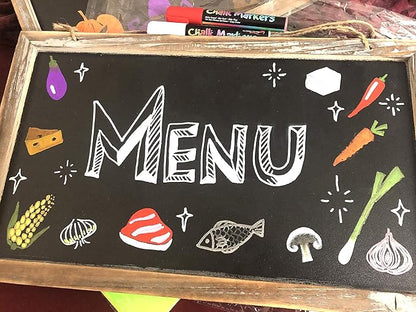 Chalk Markers
Chalk Markers
MENU